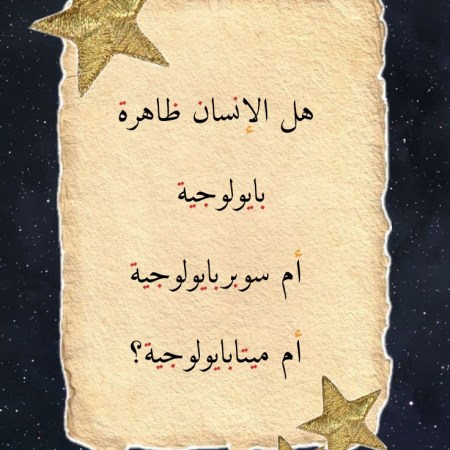 هل الإنسان ظاهرة
بايولوجية
أم سوبربايولوجية
أم ميتابايولوجية؟